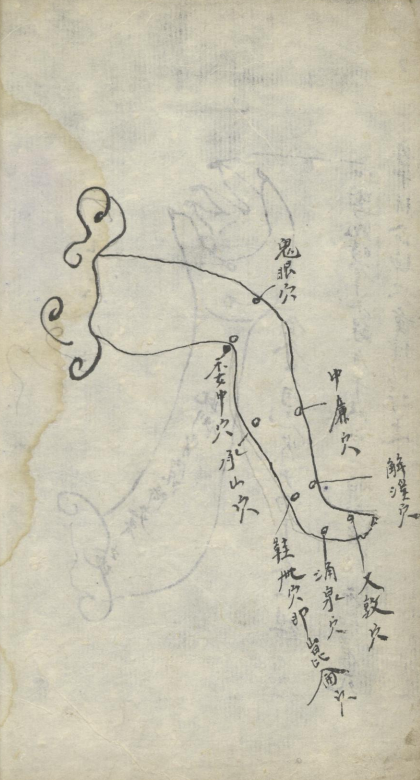 鬼眼穴
中廉穴
解溪穴
大敦穴
涌泉穴
鞋帶穴即崑崙穴
承山穴
委中穴